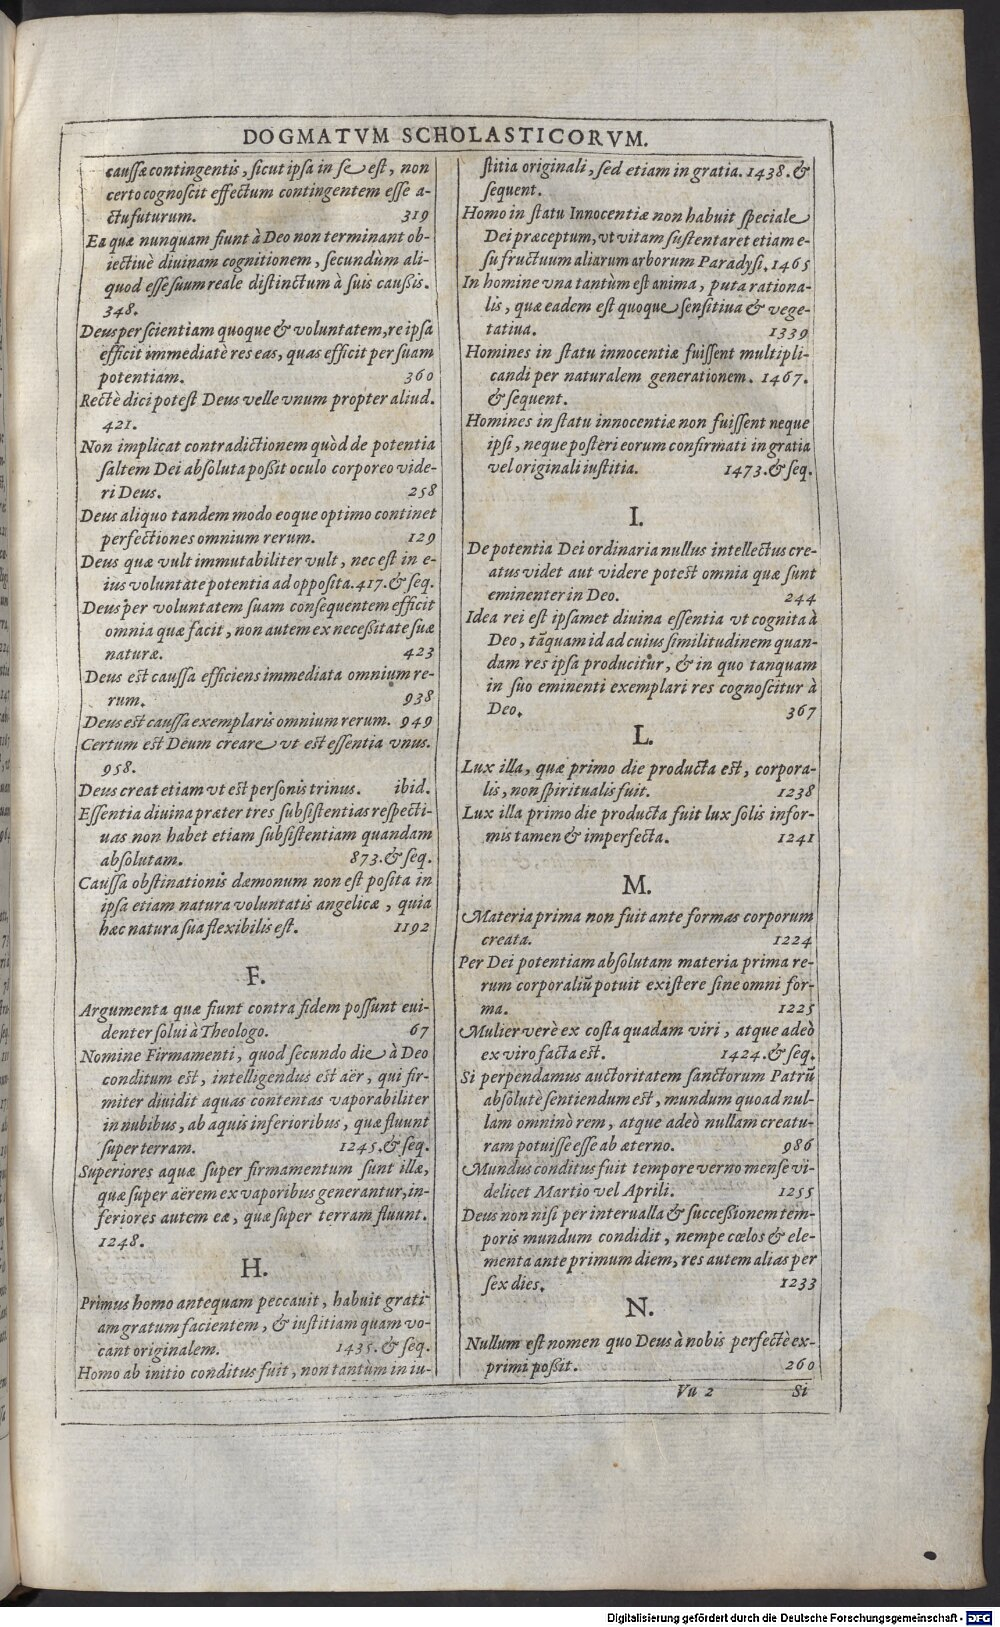 DOGMATVM SCHOLASTICORVM.
caussæ contingentis, sicut ipsa in se est, non
certo cognoscit effectum contingentem esse a-
ctu futurum. 319
Ea quæ nunquam fiunt à Deo non terminant ob-
iectiuè diuinam cognitionem, secundùm ali-
quod esse suum reale distinctum à suis caußis.
348.
Deus per scientiam quoque & voluntatem, re ipsa
efficit immediatè res eas, quas efficit per suam
potentiam. 360
Rectè dici potest Deus velle vnum propter aliud.
421.
Non implicat contradictionem quòd de potentia
saltem Dei absoluta poßit oculo corporeo vide-
ri Deus. 258
Deus aliquo tandem modo eoque optimo continet
perfectiones omnium rerum. 129
Deus quæ vult immutabiliter vult, nec est in e-
ius voluntate potentia ad opposita. 417. & seq.
Deus per voluntatem suam consequentem efficit
omnia quæ facit, non autem ex neceßitate suæ
naturæ. 423
Deus est caussa efficiens immediata omnium re-
rum. 938
Deus est caussa exemplaris omnium rerum. 949
Certum est Deum creare vt est essentia vnus.
958.
Deus creat etiam vt est personis trinus. ibid.
Essentia diuina præter tres subsistentias respecti-
uas non habet etiam subsistentiam quandam
absolutam. 873. & seq.
Caussa obstinationis dæmonum non est posita in
ipsa etiam natura voluntatis angelicæ, quia
hæc natura sua flexibilis est. 1192
F.
Argumenta quæ fiunt contra fidem possunt eui-
denter solui à Theologo. 67
Nomine Firmamenti, quod secundo die à Deo
conditum est, intelligendus est aër, qui fir-
miter diuidit aquas contentas vaporabiliter
in nubibus, ab aquis inferioribus, quæ fluunt
super terram. 1245. & seq.
Superiores aquæ super firmamentum sunt illæ,
quæ super aërem ex vaporibus generantur, in-
feriores autem eæ, quæ super terram fluunt.
1248.
H.
Primus homo antequam peccauit, habuit grati-
am gratum facientem, & iustitiam quam vo-
cant originalem. 1435. & seq.
Homo ab initio conditus fuit, non tantùm in iu-
stitia originali, sed etiam in gratia. 1438. &
sequent.
Homo in statu Innocentiæ non habuit speciale
Dei præceptum, vt vitam sustentaret etiam e-
su fructuum aliarum arborum Paradysi. 1465
In homine vna tantùm est anima, puta rationa-
lis, quæ eadem est quoque sensitiua & vege-
tatiua. 1339
Homines in statu innocentiæ fuissent multipli-
candi per naturalem generationem. 1467.
& sequent.
Homines in statu innocentiæ non fuissent neque
ipsi, neque posteri eorum confirmati in gratia
vel originali iustitia. 1473. & seq.
I.
De potentia Dei ordinaria nullus intellectus cre-
atus videt aut videre potest omnia quæ sunt
eminenter in Deo. 244
Idea rei est ipsamet diuina essentia vt cognita à
Deo, tãquam id ad cuius similitudinem quan-
dam res ipsa producitur, & in quo tanquam
in suo eminenti exemplari res cognoscitur à
Deo. 367
L.
Lux illa, quæ primo die producta est, corpora-
lis, non spiritualis fuit. 1238
Lux illa primo die producta fuit lux solis infor-
mis tamen & imperfecta. 1241
M.
Materia prima non fuit ante formas corporum
creata. 1224
Per Dei potentiam absolutam materia prima re-
rum corporaliũ potuit existere sine omni for-
ma. 1225
Mulier verè ex costa quadam viri, atque adeò
ex viro facta est. 1424. & seq.
Si perpendamus auctoritatem sanctorum Patrũ
absolutè sentiendum est, mundum quoad nul-
lam omninò rem, atque adeò nullam creatu-
ram potuisse esse ab æterno. 986
Mundus conditus fuit tempore verno mense vi-
delicet Martio vel Aprili. 1255
Deus non nisi per interualla & succeßionem tem-
poris mundum condidit, nempe cœlos & ele-
menta ante primum diem, res autem alias per
sex dies. 1233
N.
Nullum est nomen quo Deus à nobis perfectè ex-
primi poßit. 260
Vu 2 Si
Digitalisierung gefördert durch die Deutsche Forschungsgemeinschaft - DFG